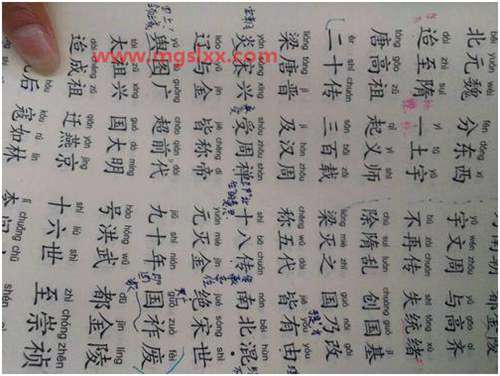 都金陵
北元魏 分东西 宇文周 与高齐
dài zhì suí yì tǔ yǔ bú zài chuán shī tǒng xù
迨至隋 一土宇 不再传 失统绪
táng gāo zǔ qǐ yì shī chú suí luàn chuàng guó jī
唐高祖 起义师 除隋乱 创国基
èr shí chuán sān bǎi zǎi liáng miè zhī guó nǎi gǎi
二十传 三百载 梁灭之 国乃改
liáng táng jìn jí hàn zhōu chēng wǔ dài jiē yǒu yóu
梁唐晋 及汉周 称五代 皆有由
yán sòng xīng shòu zhōu shàn shí bā chuán nán běi hùn
炎宋兴 受周禅 十八传 南北混
liáo yǔ jīn jiē chēng dì yuán miè jīn jué sòng shì
辽与金 皆称帝 元灭金 绝宋世
yú tú guǎng chāo qián dài jiǔ shí nián guó zuò fèi
舆图广 超前代 九十年 国祚废
tài zǔ xīng guó dà míng hào hóng wǔ dū jīn líng
太祖兴 国大明 号洪武 都金陵
dài chéng zǔ qiān yān jīng shí liù shì zhì chóng zhēn
迨成祖 迁燕京 十六世 至崇祯
后 寇如林
www.mgslxx.com